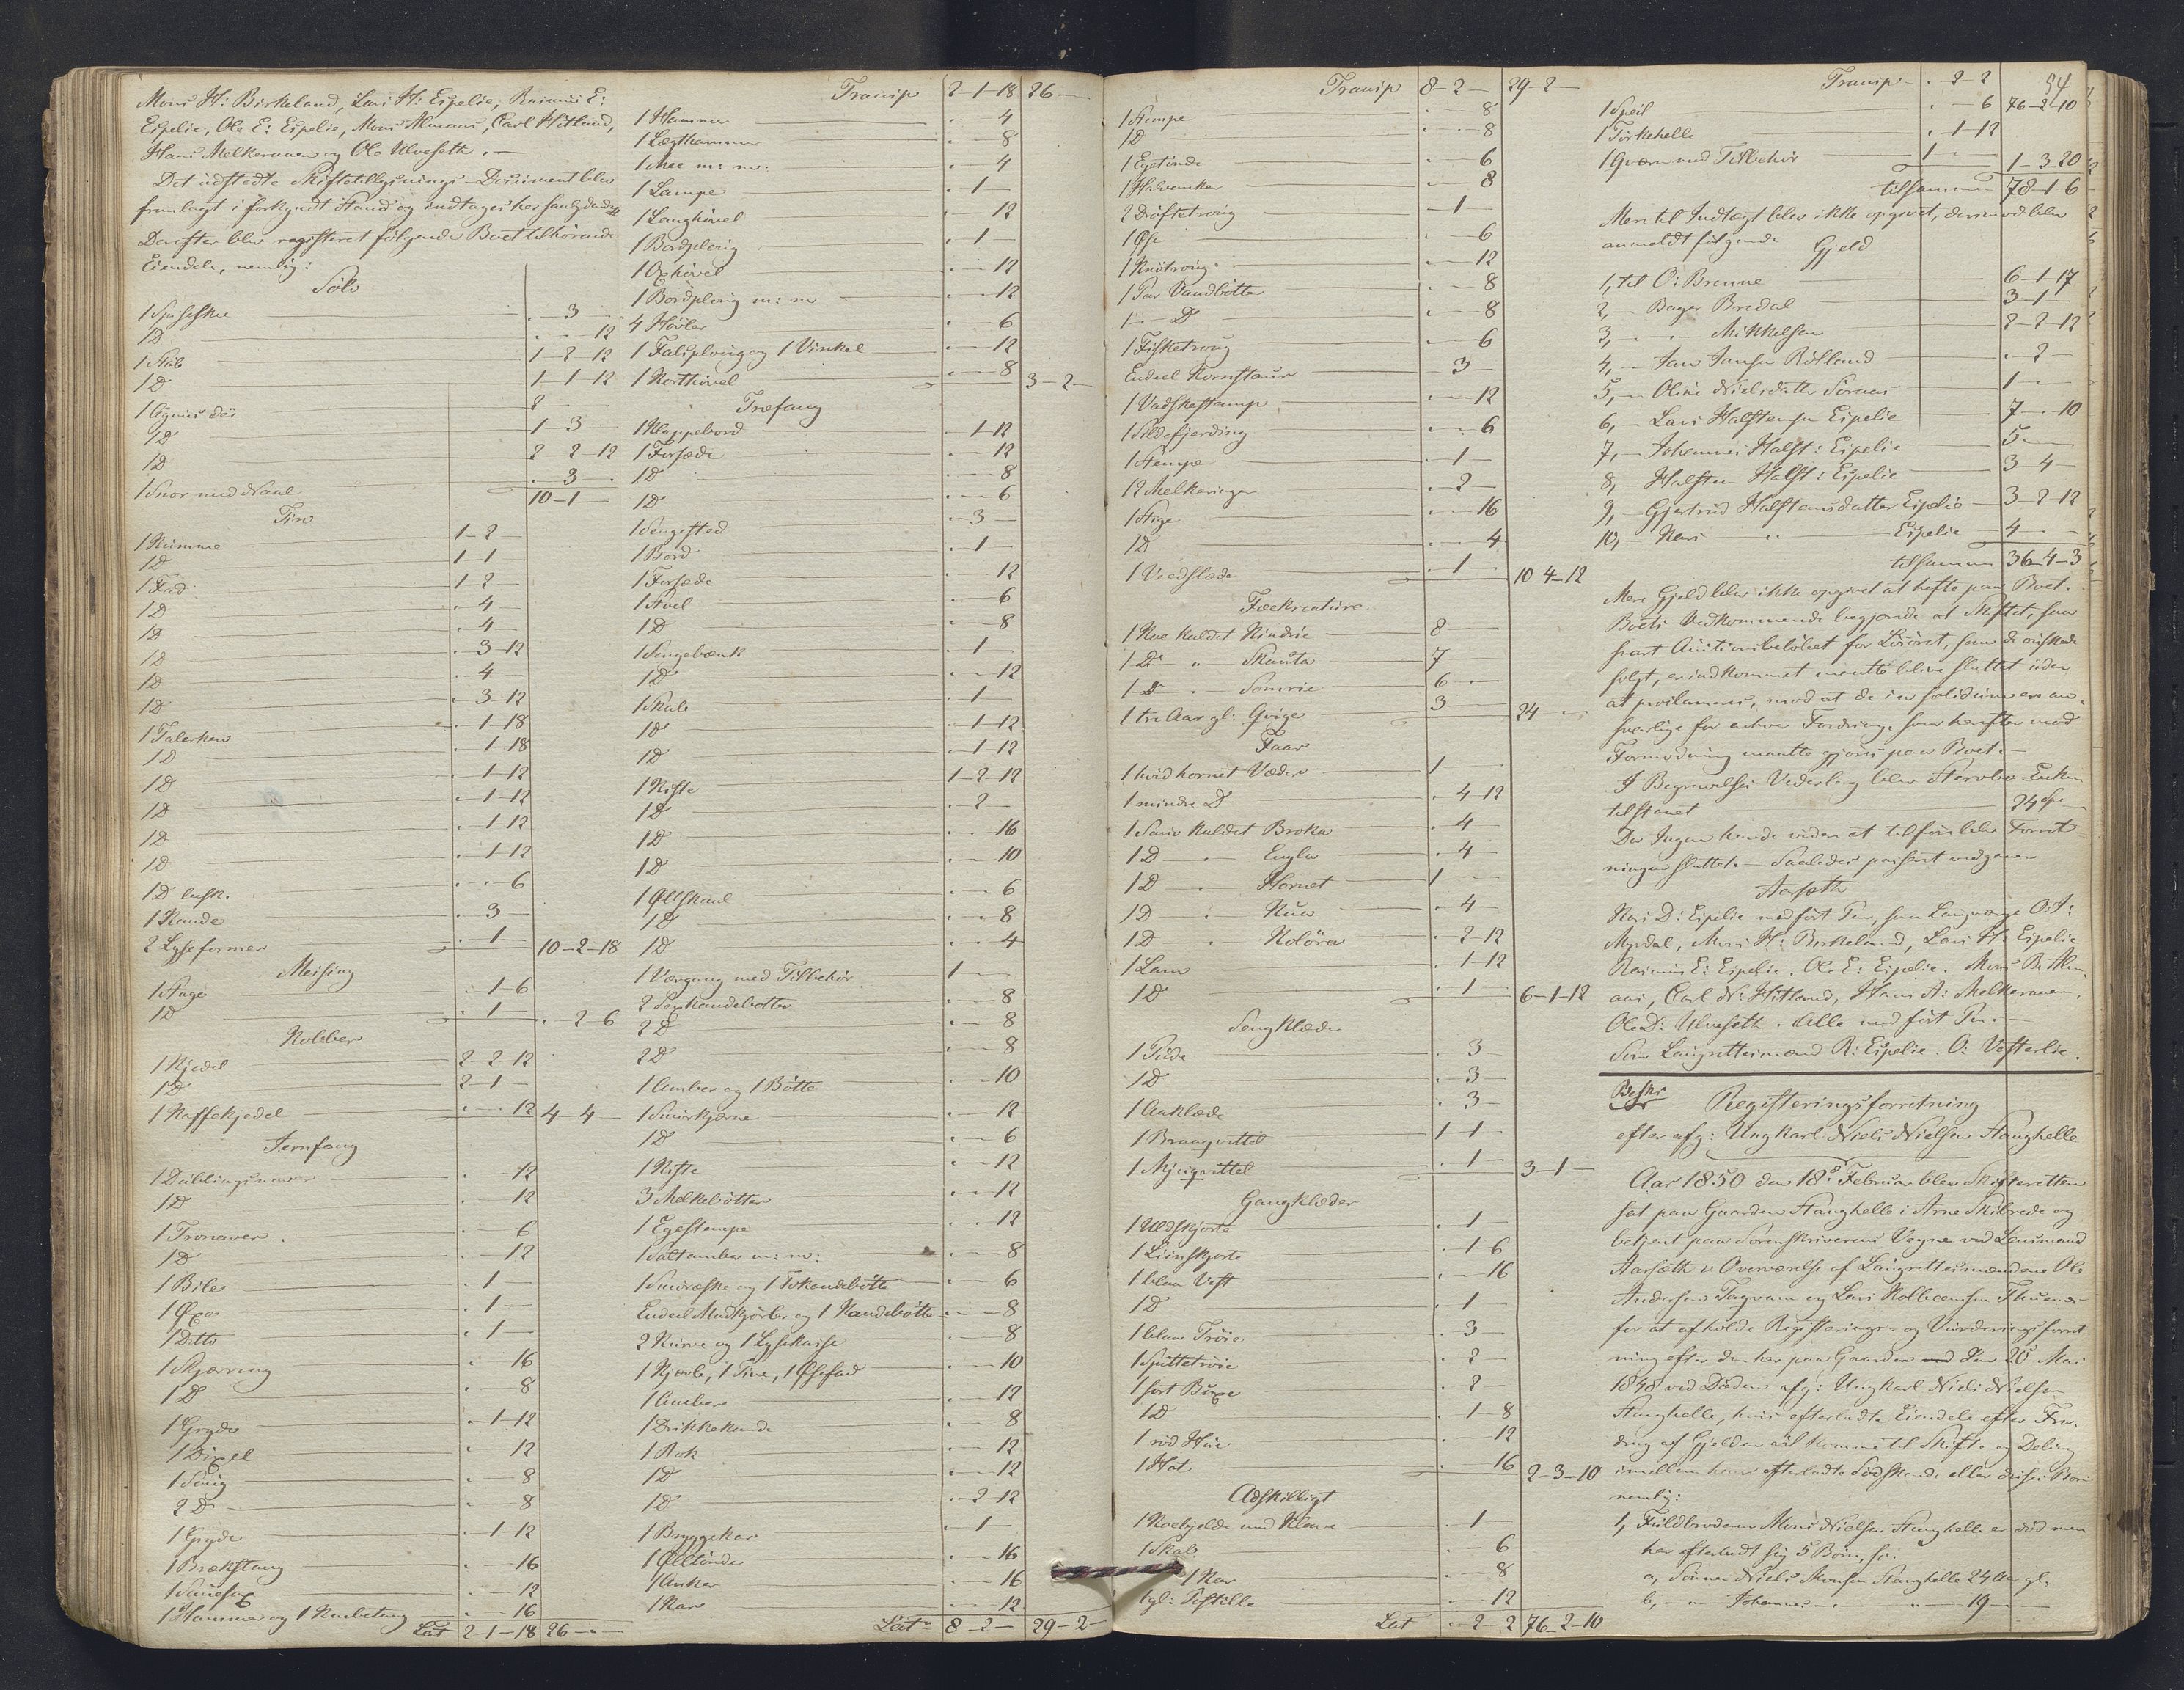 Mons H: Birkeland, Lars H: Espelie, Rasmus E:
Espelie, Ole E: Espelie, Mons Almaas, Carl Hitland,
Hans Melkeraaen og Ole Ulveseth. —
Det udstedte Skiftetillysnings-Document blev
fremlagt i forkyndt Stand og indtages her saalydende
Derefter blev registeret følgende Boet tilhørende
Eiendele, nemlig:
Sølv
1 Spiseskee . 3 —
1 D . — 12
1 Støb 1-2-12
1 D 1-1-12
1 Agnus dei 2 —
1 D 1-3
1 D 2-2-12
1 Snor med Naal . 3 .
10-1 —
Tin
1 Kumme 1-2 —
1 D 1-1 —
1 Fad 1-2 —
1 D . 4 —
1 D . 4 —
1 D . 3-12
1 D . 4 —
1 D . 3-12
1 Talerken . 1-18
1 D . 1-18
1 D . 1-12
1 D . 1-12
1 D . 1-12
1 D . 1-12
1 D . . 6
1 Kande . 3 —
2 Lyseformer . 1 — 10-2-18
Meising
1 Stage . 1-6
1 D . 1 — . 2 6
Kobber
1 Kjedel 2-2-12
1 D 2-1 —
1 Kaffekjedel . . 12 4-4 —
Jernfang
1 Dublingsnaver . 12
1 D . 12
1 Tronaver . . 6
1 D . — 12
1 Bile . 1 —
1 Øxe . 1 —
1 Ditto . 1 —
1 Skjæring . — 16
1 D . — 8
1 Gryde . 1-12
1 Dixel . — 12
1 Saug . — 8
2 D . — 8
1 Gryde . 1-12
1 Brækstang . — 16
1 Sauesax . — 12
1 Hammer og 1 Knibetang . — 16
Lat 2-1-18 26 — . —
Transp 2-1-18 26 —
1 Hammer . 4
1 Lægthammer . — 8
1 Knee m: m. . — 4
1 Lampe . 1 —
1 Langhøvel . — 12
1 Bordploug . 1 —
1 Oxhøvel . — 12
1 Bordploug m: m . — 12
4 Høvler . — 6
1 Falsploug og 1 Vinkel . — 12
1 Korthøvel . — 8 3-2 —
Træfang
1 Klappebord . 1-12
1 Forsæde . — 12
1 D . — 8
1 D . — 6
1 Sengested . 3 —
1 Bord . 1 —
1 Forsæde . — 12
1 Stoel . — 6
1 D . — 8
1 Sengebænk . 1
1 D . — 12
1 Skab . 1 —
1 D . 1-12
1 D . 1-12
1 Kiste 1-2-12
1 D . 2 —
1 D . — 16
1 D . — 10
1 Ølskaal . — 6
1 D . — 8
1 D . — 4
1 Værgang med Tilbehør 1 —
2 Sexkandebøtter . — 8
2 D . — 8
2 D . — 8
1 Amber og 1 Bøtte . — 10
1 Smørkjærne . — 12
1 D . — 6
1 Kiste . — 12
3 Melkebøtter . — 12
1 Egestempe . . 12
1 Saltamber m: m: . — 8
1 Smøræske og 1 Tokandebøtte . — 6
Endeel Madkjørler og 1 Kandebøtte . — 8
2 Kurve og 1 Lysekasse . — 8
1 Kjørle, 1 Tine, 1 Øsefad . — 10
1 Amber . — 12
1 Drikkekande . — 8
1 Rok . — 12
1 D . — 12
1 D . 2-12
1 Bryggekar . 1 —
1 Øltønde . — 16
1 Anker . — 16
1 Kar . — 12
Lat 8-2 — 29-2 —
Transp 8-2 — 29-2 —
1 Stempe . — 8
1 D . — 8
1 Egetønde . — 6
1 Halvanker . — 8
2 Drøftetroug . 1 —
1 Øse . — 6
1 Knøtroug . — 12
1 Par Vandbøtter . — 8
1 — D . — 8
1 Fisketroug . — 6
Endeel Kornstaur . 3 —
1 Vadskestamp . — 12
1 Sildefjerding . — 6
1 Stempe . 1 —
12 Melkeringer . 2 —
1 Stige . — 16
1 D . — 4
1 Veedslæde . 1 — 10 4-12
Fæekreature
1 Koe kaldet Kindrie 8 —
1 D " Skauta 7
1 D . Somrie 6 . —
1 tre Aar gl: Qvige 3 24 —
Faar
1 hvid hornet Væder 1 —
1 mindre D . 4-12
1 Souv kaldet Broka . 4 —
1 D — . Engla . 4 —
1 D — . Hornet 1 —
1 D — . Kua . 4 —
1 D . Kolöra . 2-12
1 Lam . 1-12
1 D . 1 — 6-1-12
Sengklæder
1 Pude . 3 —
1 D . 3 —
1 Aaklæde . 3 —
1 Braagvittel 1 1 —
1 Myugvittel . 1 — 3-1 —
Gangklæder
1 Uldskjorte . 1 —
1 Liinskjorte . 1 6
1 blaa Vest . — 16
1 D . 1 —
1 blaa Trøie . 3 —
1 Spittetrøie . 2 —
1 sort Buxe . 2 —
1 D . 1-8
1 rød Hue . — 12
1 Hat . — 16 2-3-10
Adskilligt
1 Koebjelde med Klave . 1 —
1 Skab . — 6
1 Kar . — 8
1 gl: Postille . — 12
Lat . 2-2 76-2-10
54
Transp . 2-2 76-2-10
1 Speil . — 6
1 Tørkehelle . 1-12
1 Qværn med Tilbehør 1 — 1-3-20
tilsammen 78-1-6
Mere til Indtægt blev ikke opgivet, derimod blev
anmeldt følgende
Gjeld
1, til O: Brunne 6-1-17
2, — Bager Bredal 3-1 —
3, — " Mikkelsen 2-2-12
4, — Jan Jansen Rødland . 2 —
5, — Oline Nielsdatter Sørnæs 1 —
6, — Lars Halstensen Espelie 7 — 10
7, — Johannes Halst: Espelie 5 —
8, — Halsten Halst: Espelie 3-4 —
9, — Gjertrud Halstensdatter Espelie 3-2-12
10, — Kari " — Espelie 4 —
tilsammen 36-4-3
Mere Gjeld blev ikke opgivet at hefte paa Boet.
Boets Vedkommende begjærede at Skiftet, saa
snart Auctionsbeløbet for Løsøret, som de ønskede
solgt, er indkommet maatte blive sluttet uden
at proclameres, mod at de in solidum ere an-
svarlige for enhver Fordring, som herefter mod
Formodning maatte gjøres paa Boet. —
I Begravelses Vederlag blev Sterboe-Enken
tilstaaet 24 Spd
Da Ingen havde videre at tilføre blev Forret-
ningen sluttet. — Saaledes passeret vidgaaer
Aarsæth
Kari D: Espelie med ført Pen, som Laugværge O: A:
Myrdal, Mons H: Birkeland, Lars H: Espelie
Rasmus E: Espelie. Ole E: Espelie. Mons B: Alm-
aas, Carl N: Hitland, Hans A: Melkeraaen.
Ole D: Ulveseth. Alle med ført Pen. —
Som Laugrettesmænd R: Espelie. O: Vesterlie.
Beskr
Registeringsforretning
efter afg: Ungkarl Niels Nielsen Stanghelle
Aar 1850 den 18de Februar blev Skifteretten
sat paa Gaarden Stanghelle i Arne Skibrede og
betjent paa Sorenskriverens Vegne ved Lensmand
Aarsæth i Overværelse af Laugrettesmændene Ole
Andersen Tagvam og Lars Kolbeensen Thunæs
for at afholde Registerings- og Vurderingsforret-
ning efter den her paa Gaarden den 20de Mai
1848 ved Døden afg: Ungkarl Niels Nielsen
Stanghelle, hvis efterladte Eiendele efter Fra-
drag af Gjelden vil komme til Skifte og Deling
imellem hans efterladte Sødskende eller disses Børn
nemlig:
1, Fuldbroderen Mons Nielsen Stanghelle er død men
har efterladt sig 5 Børn, so:
a, Sønnen Niels Monsen Stanghelle 24 Aar gl:
b, — " — Johannes — " — " — 19 — —